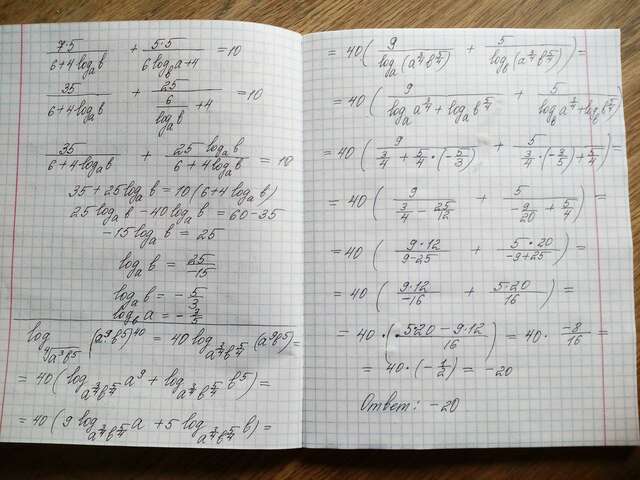 7·5/(6+4log_a b) + 5·5/(6log_b a+4) = 10
35/(6+4log_a b) + 25/(6/(log_a b) + 4) = 10
35/(6+4log_a b) + 25log_a b/(6+4log_a b) = 10
35+25log_a b = 10(6+4log_a b)
25log_a b - 40log_a b = 60-35
-15log_a b = 25
log_a b = 25/-15
log_a b = -5/3
log_b a = -3/5
(a⁹b⁵)⁴⁰ = 40 log_{a^{3/4}b^{5/4}} (a⁹b⁵) =
= 40(log_{a^{3/4}b^{5/4}} a⁹ + log_{a^{3/4}b^{5/4}} b⁵) =
= 40(9 log_{a^{3/4}b^{5/4}} a + 5 log_{a^{3/4}b^{5/4}} b) =
= 40(9/(log_a(a^{3/4}b^{5/4})) + 5/(log_b(a^{3/4}b^{5/4}))) =
= 40(9/(log_a a^{3/4} + log_a b^{5/4}) + 5/(log_b a^{3/4} + log_b b^{5/4}))
= 40(9/(3/4 + 5/4·(-5/3)) + 5/(3/4·(-3/5) + 5/4)) =
= 40(9/(3/4 - 25/12) + 5/(-9/20 + 5/4)) =
= 40(9·12/(9-25) + 5·20/(-9+25)) =
= 40(9·12/-16 + 5·20/16) =
= 40·((5·20-9·12)/16) = 40·-8/16 =
= 40·(-1/2) = -20
Ответ: -20